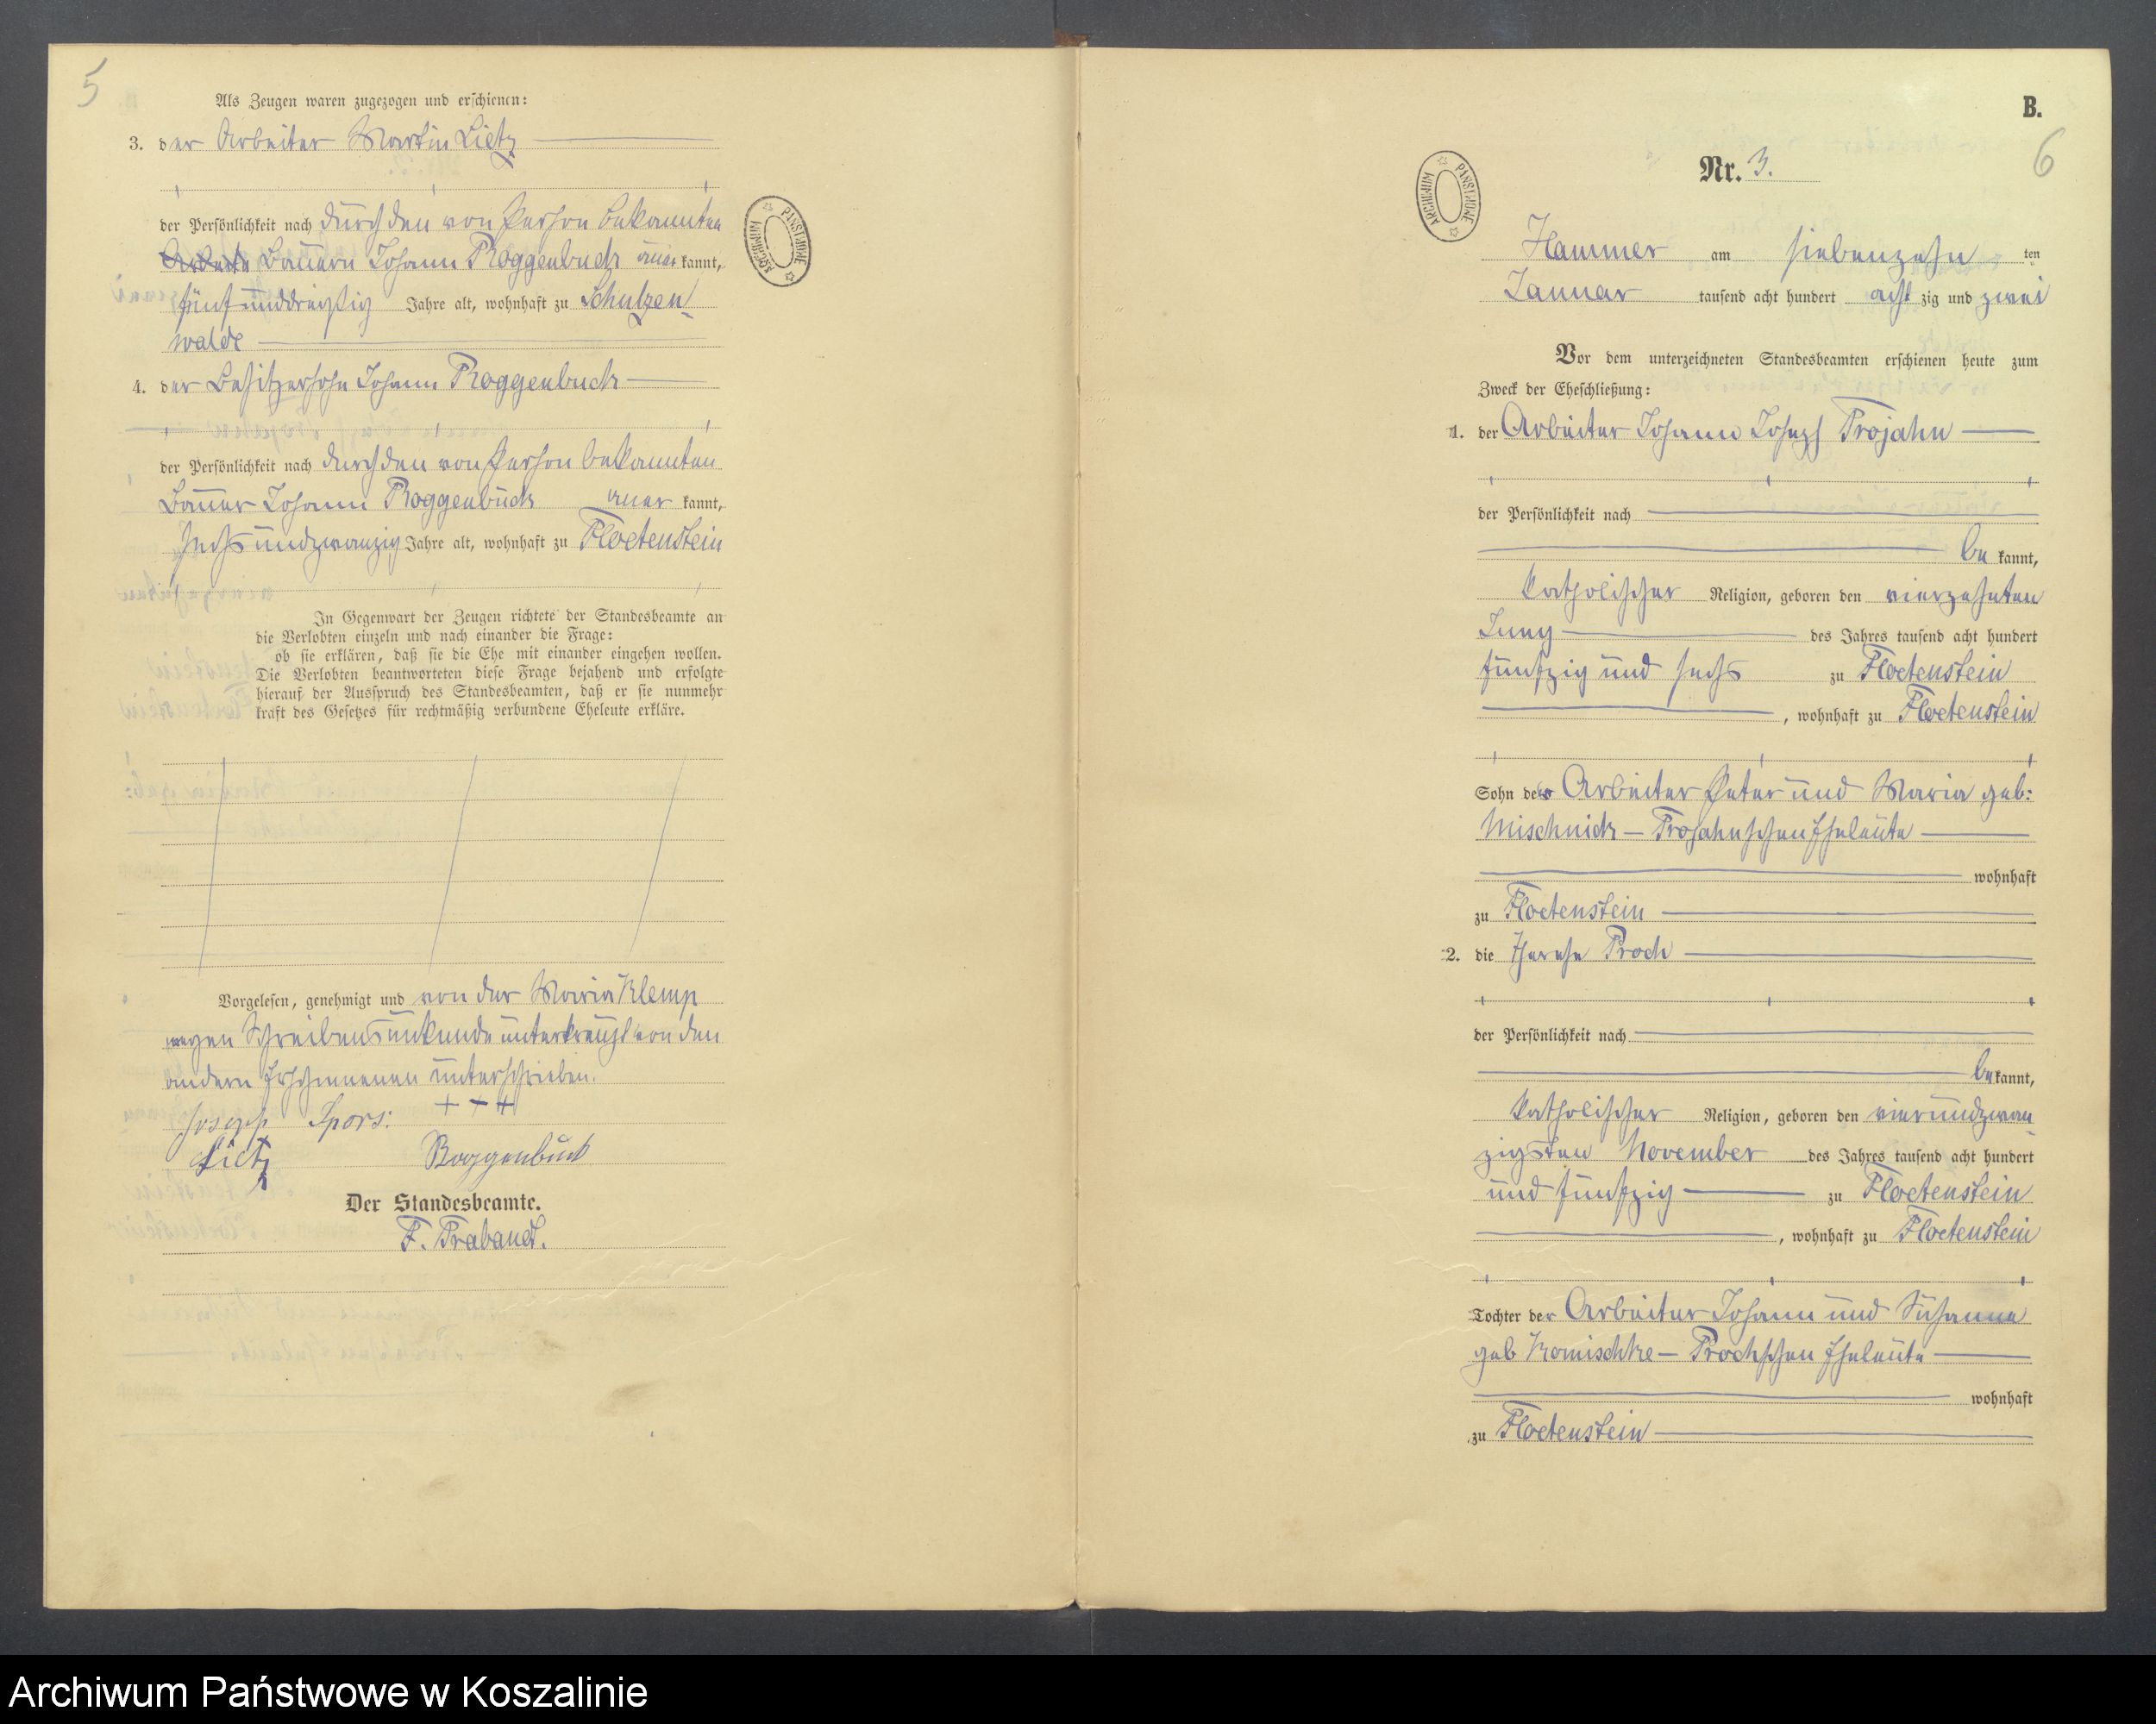 5
Als Zeugen waren zugezogen und erschienen:
3. der Arbeiter Martin Lietz
der Persönlichkeit nach durch den von Person bekannten
Bauern Johann Roggenbuck aner kannt,
fünfunddreißig Jahre alt, wohnhaft zu Schulzen
walde
4. der Besitzersohn Johann Roggenbuck
der Persönlichkeit nach durch den von Person bekannten
Bauer Johann Roggenbuck aner kannt,
sechsundzwanzig Jahre alt, wohnhaft zu Floetenstein
In Gegenwart der Zeugen richtete der Standesbeamte an
die Verlobten einzeln und nach einander die Frage:
ob sie erklären, daß sie die Ehe mit einander eingehen wollen.
Die Verlobten beantworteten diese Frage bejahend und erfolgte
hierauf der Ausspruch des Standesbeamten, daß er sie nunmehr
kraft des Gesetzes für rechtmäßig verbundene Eheleute erkläre.
Vorgelesen, genehmigt und von der Maria Klemp
wegen Schreibensunkunde unterkreuzt von den
andern Erschienenen unterschrieben.
Joseph Spors: + + +
Lietz Roggenbuck
Der Standesbeamte.
F. Trabandt.
ARCHIWUM PAŃSTWOWE
B.
6
ARCHIWUM PAŃSTWOWE
Nr. 3.
Hammer am siebenzehn ten
Januar tausend acht hundert acht zig und zwei
Vor dem unterzeichneten Standesbeamten erschienen heute zum
Zweck der Eheschließung:
1. der Arbeiter Johann Joseph Trojahn
der Persönlichkeit nach
be kannt,
katholischer Religion, geboren den vierzehnten
Juny des Jahres tausend acht hundert
fünfzig und sechs zu Floetenstein
, wohnhaft zu Floetenstein
Sohn der Arbeiter Peter und Maria geb:
Mischnick – Trojahnschen Eheleute
wohnhaft
zu Floetenstein
2. die Therese Proch
der Persönlichkeit nach
be kannt,
katholischer Religion, geboren den vierundzwan
zigsten November des Jahres tausend acht hundert
und fünfzig zu Floetenstein
, wohnhaft zu Floetenstein
Tochter der Arbeiter Johann und Susanna
geb Komischke – Prochschen Eheleute
wohnhaft
zu Floetenstein
Archiwum Państwowe w Koszalinie